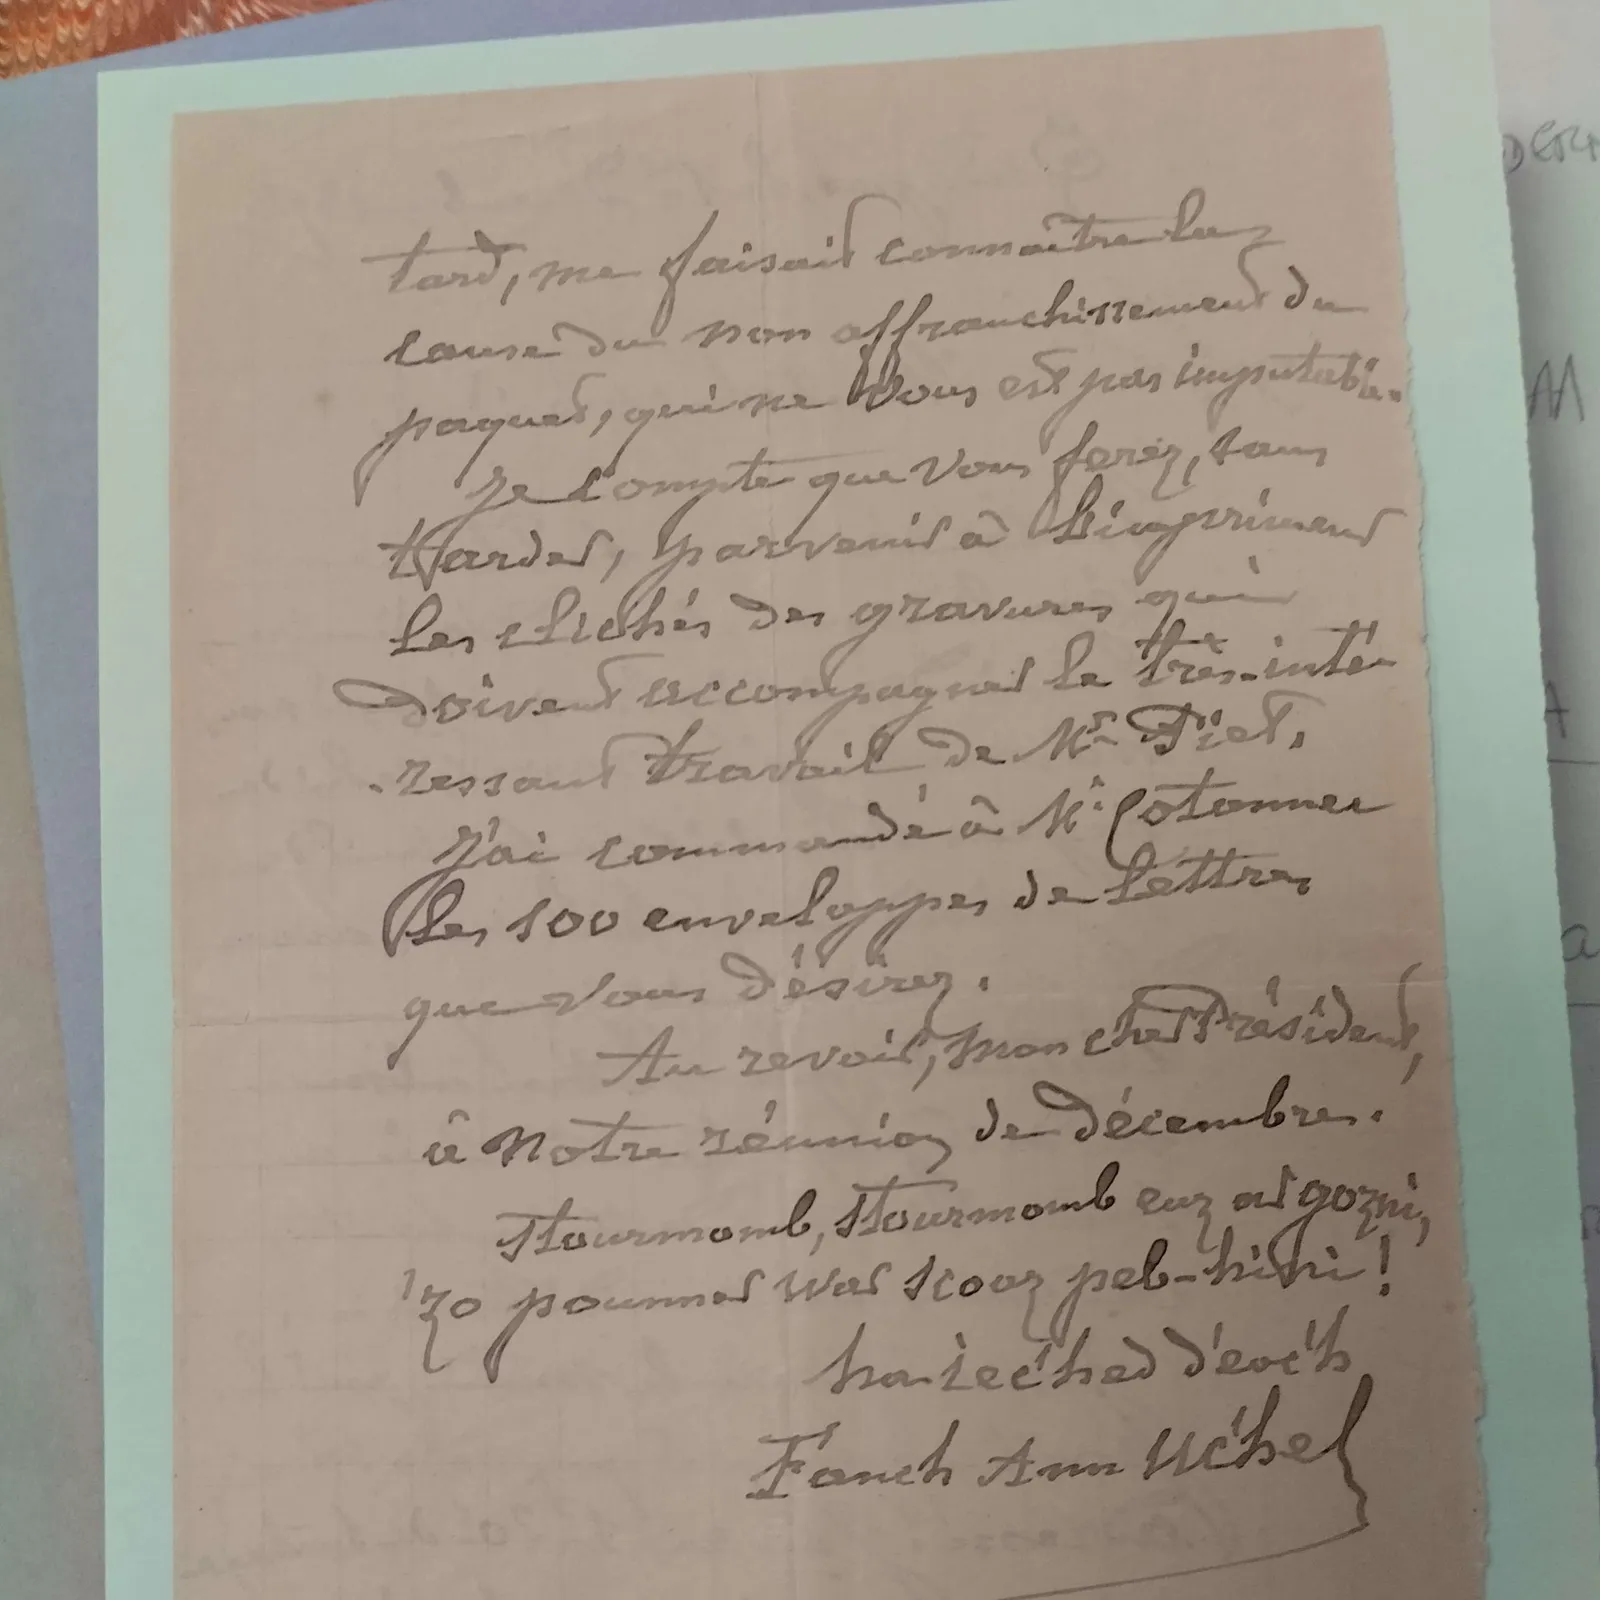 tard, me faisait connaître la
cause du non affranchissement du
paquet, qui ne vous est pas imputable.
Je compte que vous ferez, sans
tarder, parvenir à l'imprimeur
les clichés des gravures qui
doivent accompagner le très-inté-
ressant travail de Mr Piet.
J'ai commandé à Mr Cotonnec
les 100 enveloppes de lettres
que vous désirez.
Au revoir, mon cher Président,
à notre réunion de décembre.
Stourmomb, stourmomb euz ar gozni,
'zo pounner war scoaz peb-hini!
ha iec'hed d'eoc'h
Fanch Ann Uc'hel
DER
M
A
a